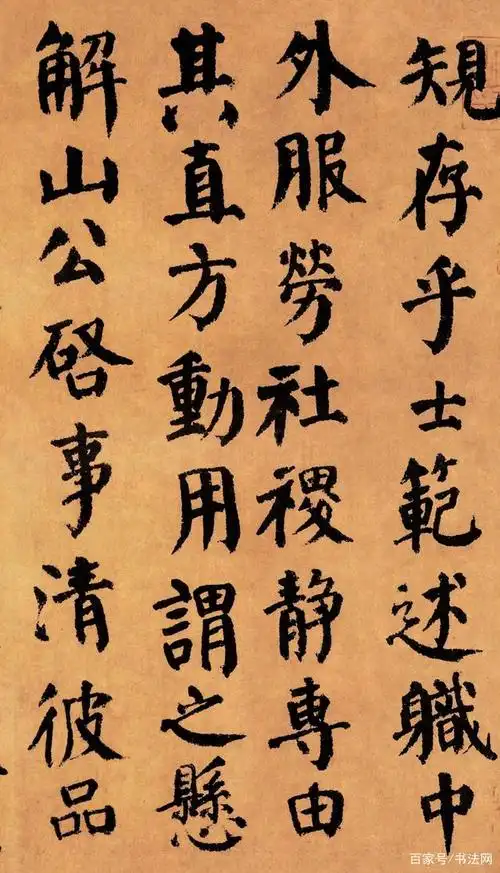 規存乎士範述職中
外服勞社稷静專由
其直方動用謂之懸
解山公啓事清彼品
百家号/书法网